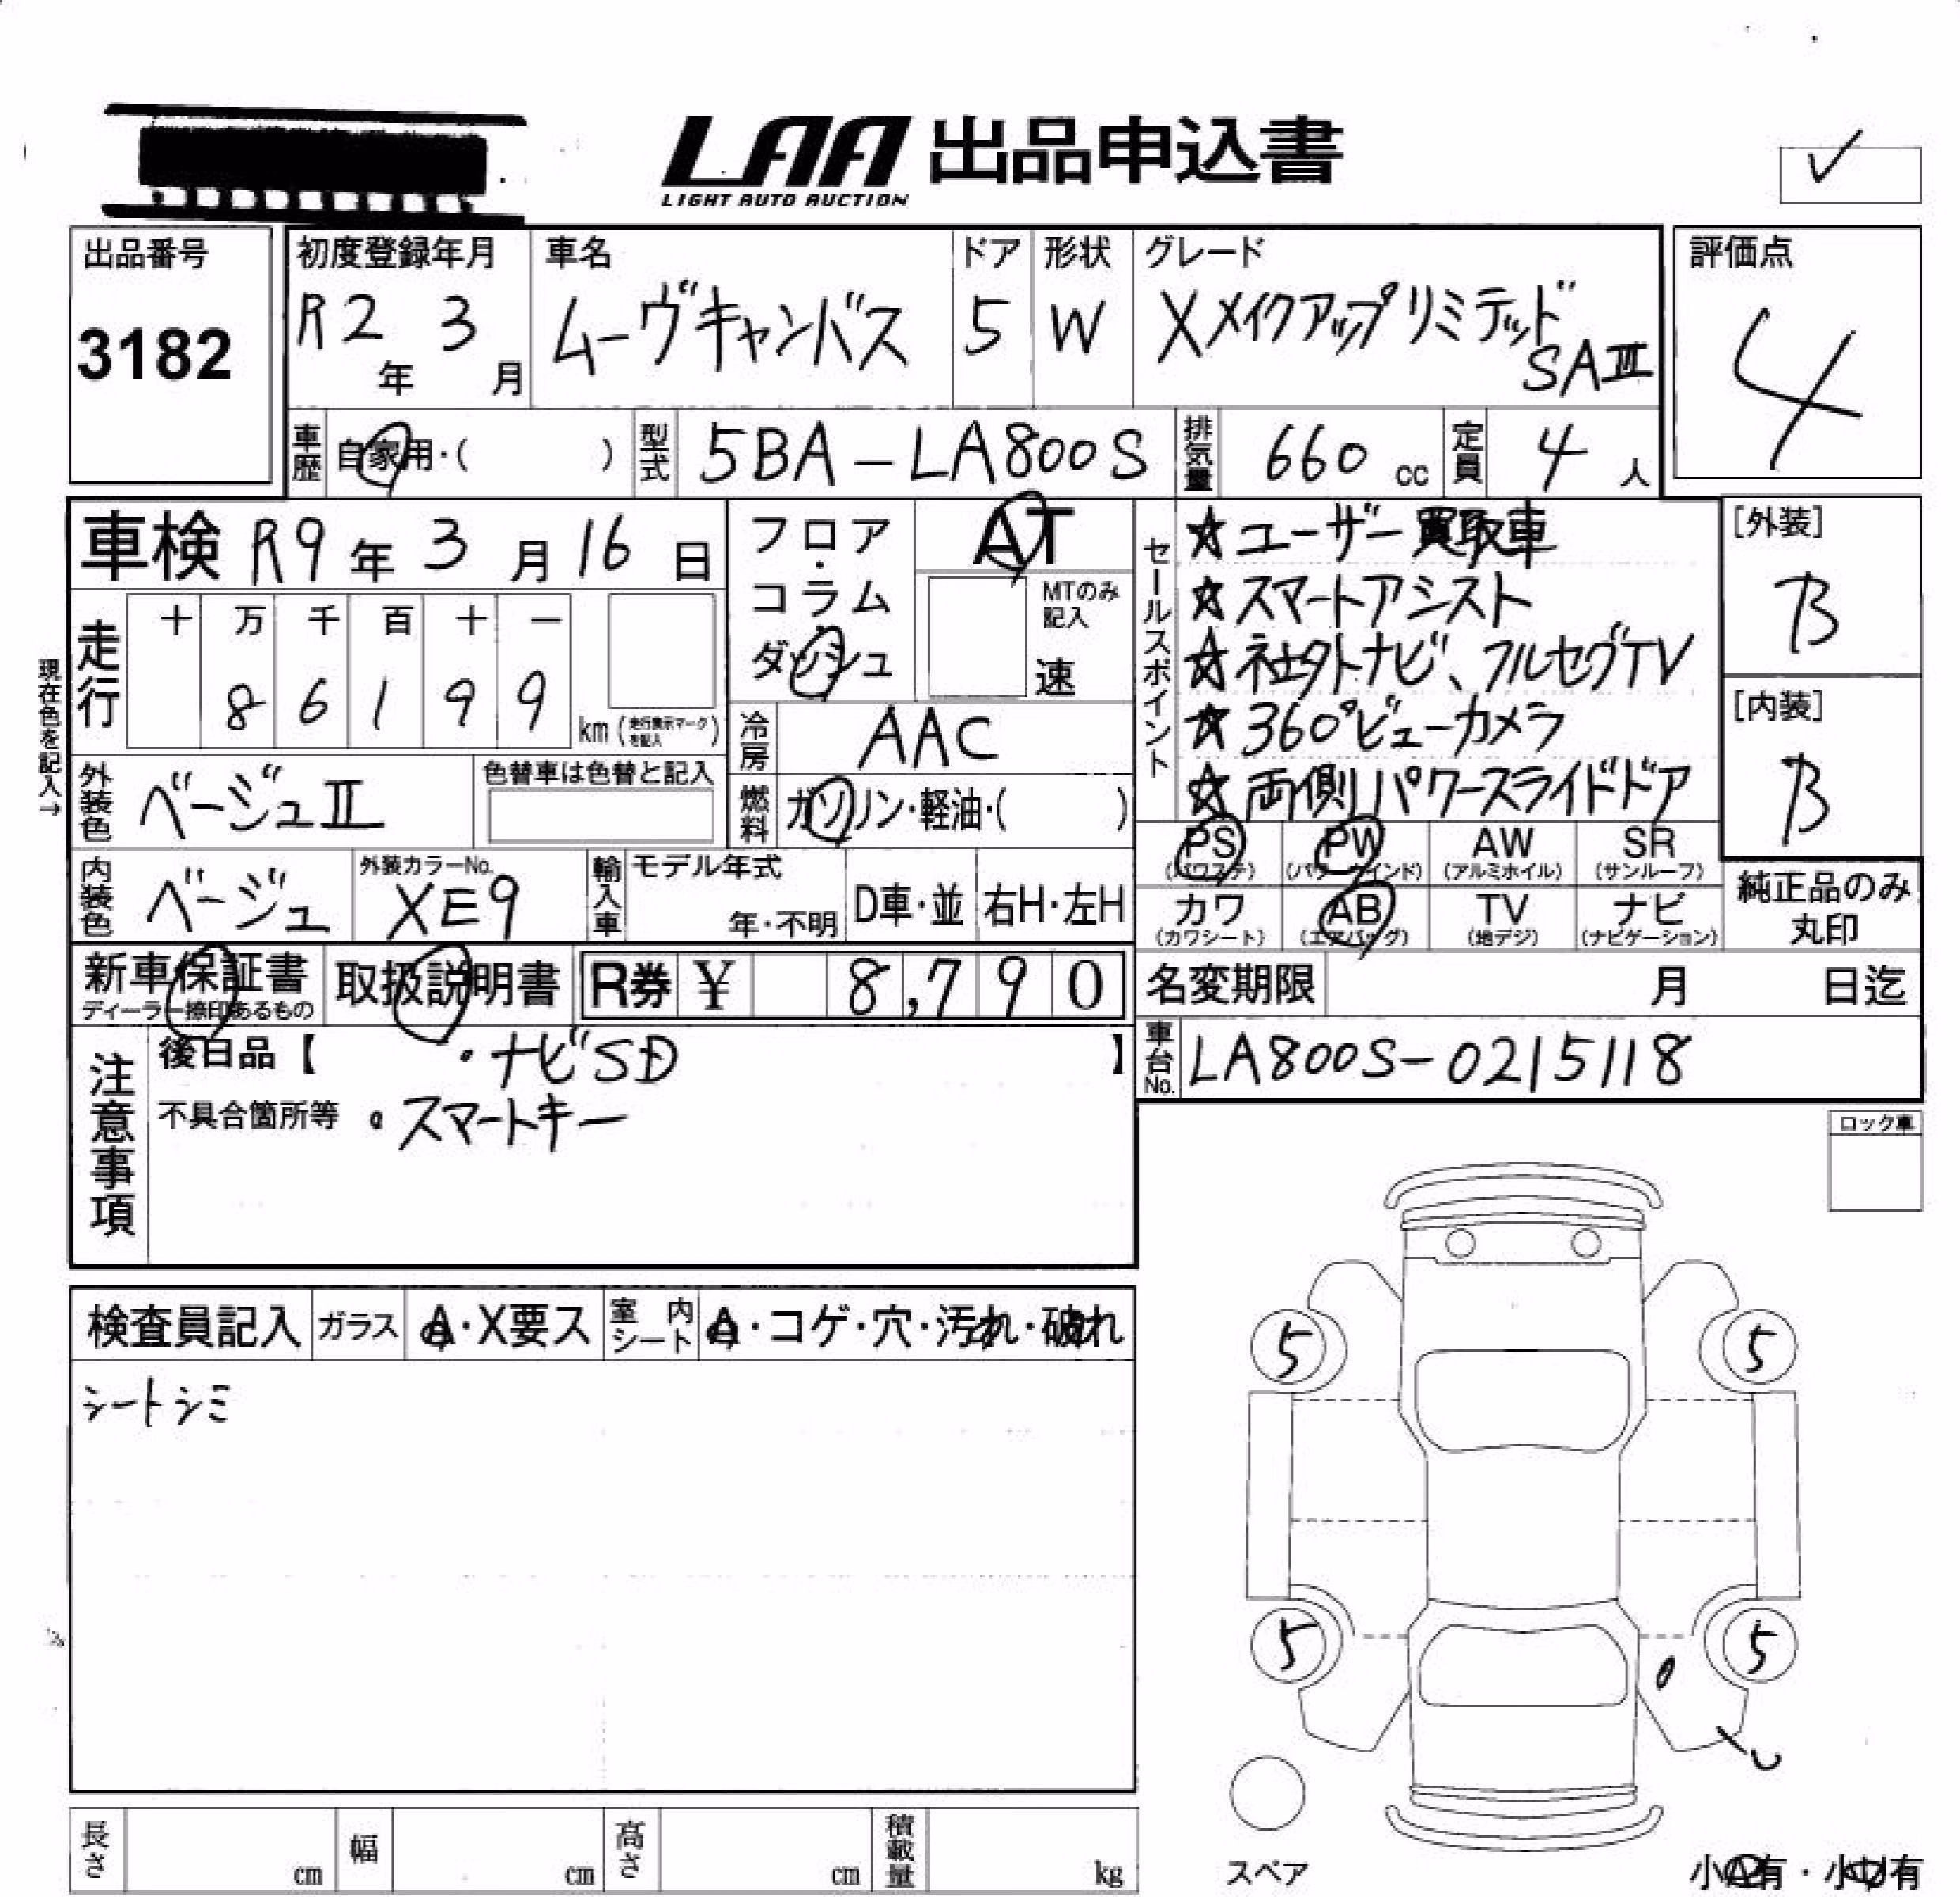 LAA 出品申込書
LIGHT AUTO AUCTION
出品番号
3182
初度登録年月
R2年 3月
車名
ムーヴキャンバス
ドア
5
形状
W
グレード
Xメイクアップリミテッド
SAⅢ
評価点
4
車歴 自家用・( )
型式 5BA-LA800S
排気量 660 cc
定員 4 人
車検 R9年 3月 16日
走行
十 万 千 百 十 一
8 6 1 9 9
km (走行表示マークを記入)
現在色を記入→
外装色 ベージュⅡ
色替車は色替と記入
内装色 ベージュ
外装カラーNo.
XE9
フロア・コラム・ダッシュ
AT
MTのみ記入
速
冷房 AAC
燃料 ガソリン・軽油・( )
輸入車 モデル年式
年・不明
D車・並
右H・左H
セールスポイント
☆ユーザー買取車
☆スマートアシスト
☆社外ナビ、フルセグTV
☆360°ビューカメラ
☆両側パワースライドドア
[外装]
B
[内装]
B
PS PW AW SR
(パワステ) (パワーウインド) (アルミホイル) (サンルーフ)
カワ AB TV ナビ
(カワシート) (エアバッグ) (地デジ) (ナビゲーション)
純正品のみ
丸印
新車保証書
ディーラー捺印あるもの
取扱説明書
R券 ¥ 8,790
名変期限 月 日迄
車台No. LA800S-0215118
注意事項
後日品【 ・ナビSD 】
不具合箇所等 ・スマートキー
ロック車
検査員記入
ガラス A・X要ス
室内シート A・コゲ・穴・汚れ・破れ
シートシミ
5 5
5 5
スペア
長さ cm
幅 cm
高さ cm
積載量 kg
小A有・小U有